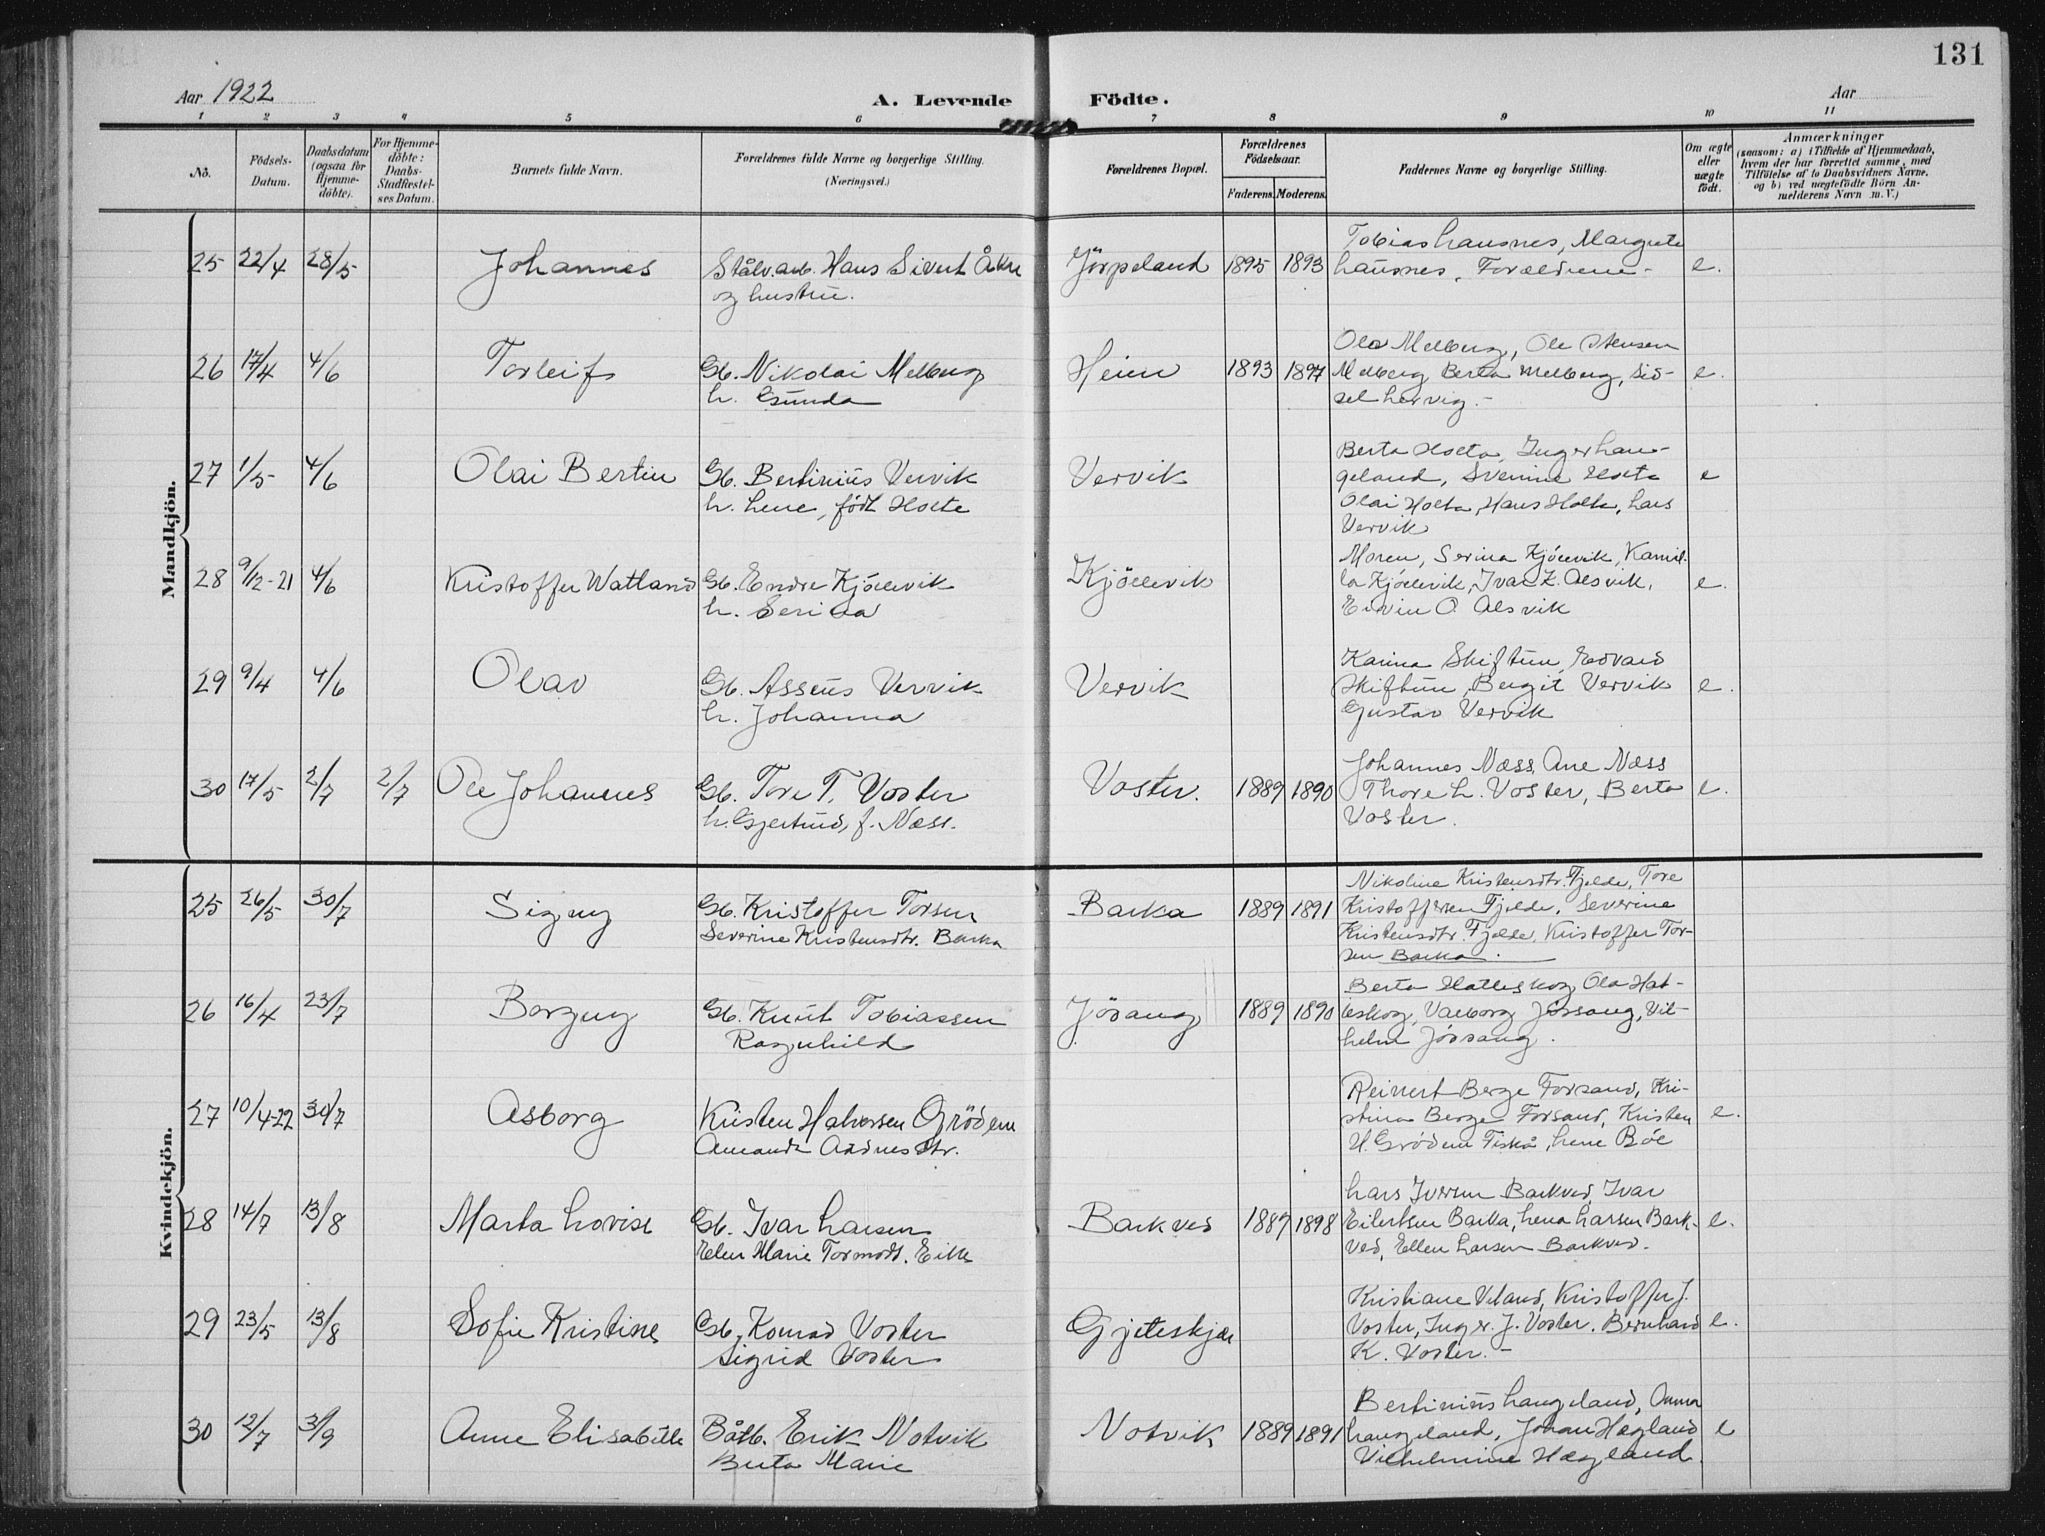 131
Aar 1922
A. Levende Födte.
Aar
1 2 3 4 5 6 7 8 9 10 11
No.
Födsels-Datum.
Daabsdatum (ogsaa for Hjemme-döbte).
For Hjemme-döbte: Daabs-Stadfæstel-ses Datum.
Barnets fulde Navn.
Forældrenes fulde Navne og borgerlige Stilling.
(Næringsvei.)
Forældrenes Bopæl.
Forældrenes Födselsaar.
Faderens. Moderens.
Faddernes Navne og borgerlige Stilling.
Om ægte eller uægte födt.
Anmærkninger
(saasom: a) i Tilfælde af Hjemmedaab,
hvem der har forrettet samme, med
Tilföielse af to Daabsvidners Navne.
og b) ved uægtefödte Börn An-
melderens Navn m. V.)
Mandkjön.
25 22/4 28/5 Johannes Stålv.arb. Hans Sivert Åkre Jörpeland 1895 1893 Tobias Lausnes, Margrete
og hustru. Lausnes, Forældrene - e.
26 17/4 4/6 Torleif Gb. Nikolai Melberg Heien 1893 1897 Ola Melberg, Ole Stensen
h. Gunda Melberg, Berta Melberg, Sid- e.
sel Lervig.-
27 1/5 4/6 Olai Bertin Gb. Bertinius Vervik Vervik Berta Holta, Inger Lan-
h. Lene, født Holte geland, Svenine Holta e
Olai Holta, Hans Holta, Lars
Vervik
28 9/12-21 4/6 Kristoffer Watland Gb. Endre Kjölevik Kjölevik Moren, Serina Kjölevik, Kamil-
h. Serina la Kjölevik, Ivar L. Alsvik, e.
Edvin O. Alsvik
29 9/4 4/6 Olav Gb. Asseus Vervik Vervik Karina Skiftun, Edvard
h. Johanna Skiftun, Bergit Vervik e.
Gustav Vervik
30 17/5 2/7 2/7 Ole Johannes Gb. Tore T. Voster Voster. 1889 1890 Johannes Næss, Ane Næss
h. Gjertrud, f. Næss. Thore L. Voster, Berta e.
Voster.
Kvindekjön.
25 26/5 30/7 Signy Gb. Kristoffer Torsen Barka 1889 1891 Nikoline Kristensdtr. Fjelde, Tore
Severine Kristensdtr. Barka Kristoffersen Fjelde, Severine
Kristensdtr. Fjelde, Kristoffer Tor-
sen Barka.
26 16/4 23/7 Borgny Gb. Knut Tobiassen Jösang 1889 1890 Berta Hatleskog, Ola Hat-
Ragnhild leskog, Valborg Jössang, Vil-
helm Jössang.
27 10/4-22 30/7 Asborg Kristen Halvorsen Grödem Reinert Berge Forsand, Kri-
Amanda Aadnesdtr. stina Berge Forsand, Kristen e.
H. Grödem Fiskå, Lene Böe
28 14/7 13/8 Marta Lovise Gb. Ivar Larsen Barkved 1887 1898 Lars Iversen Barkved, Ivar
Elen Marie Tormodt. Eike Eilertsen Barka, Lena Larsen Bark- e.
ved, Ellen Larsen Barkved.
29 23/5 13/8 Sofie Kristine Gb. Konrad Voster Gjeteskjær Kristiane Veland, Kristoffer J.
Sigrid Voster Voster, Inger J. Voster, Bernhard e.
K. Voster.-
30 12/7 3/9 Anne Elisabette Båtb. Erik Notvik Notvik 1889 1891 Bertinius Langeland, Anna
Berta Marie Langeland, Johan Hægland e
Vilhelmine Hægland.